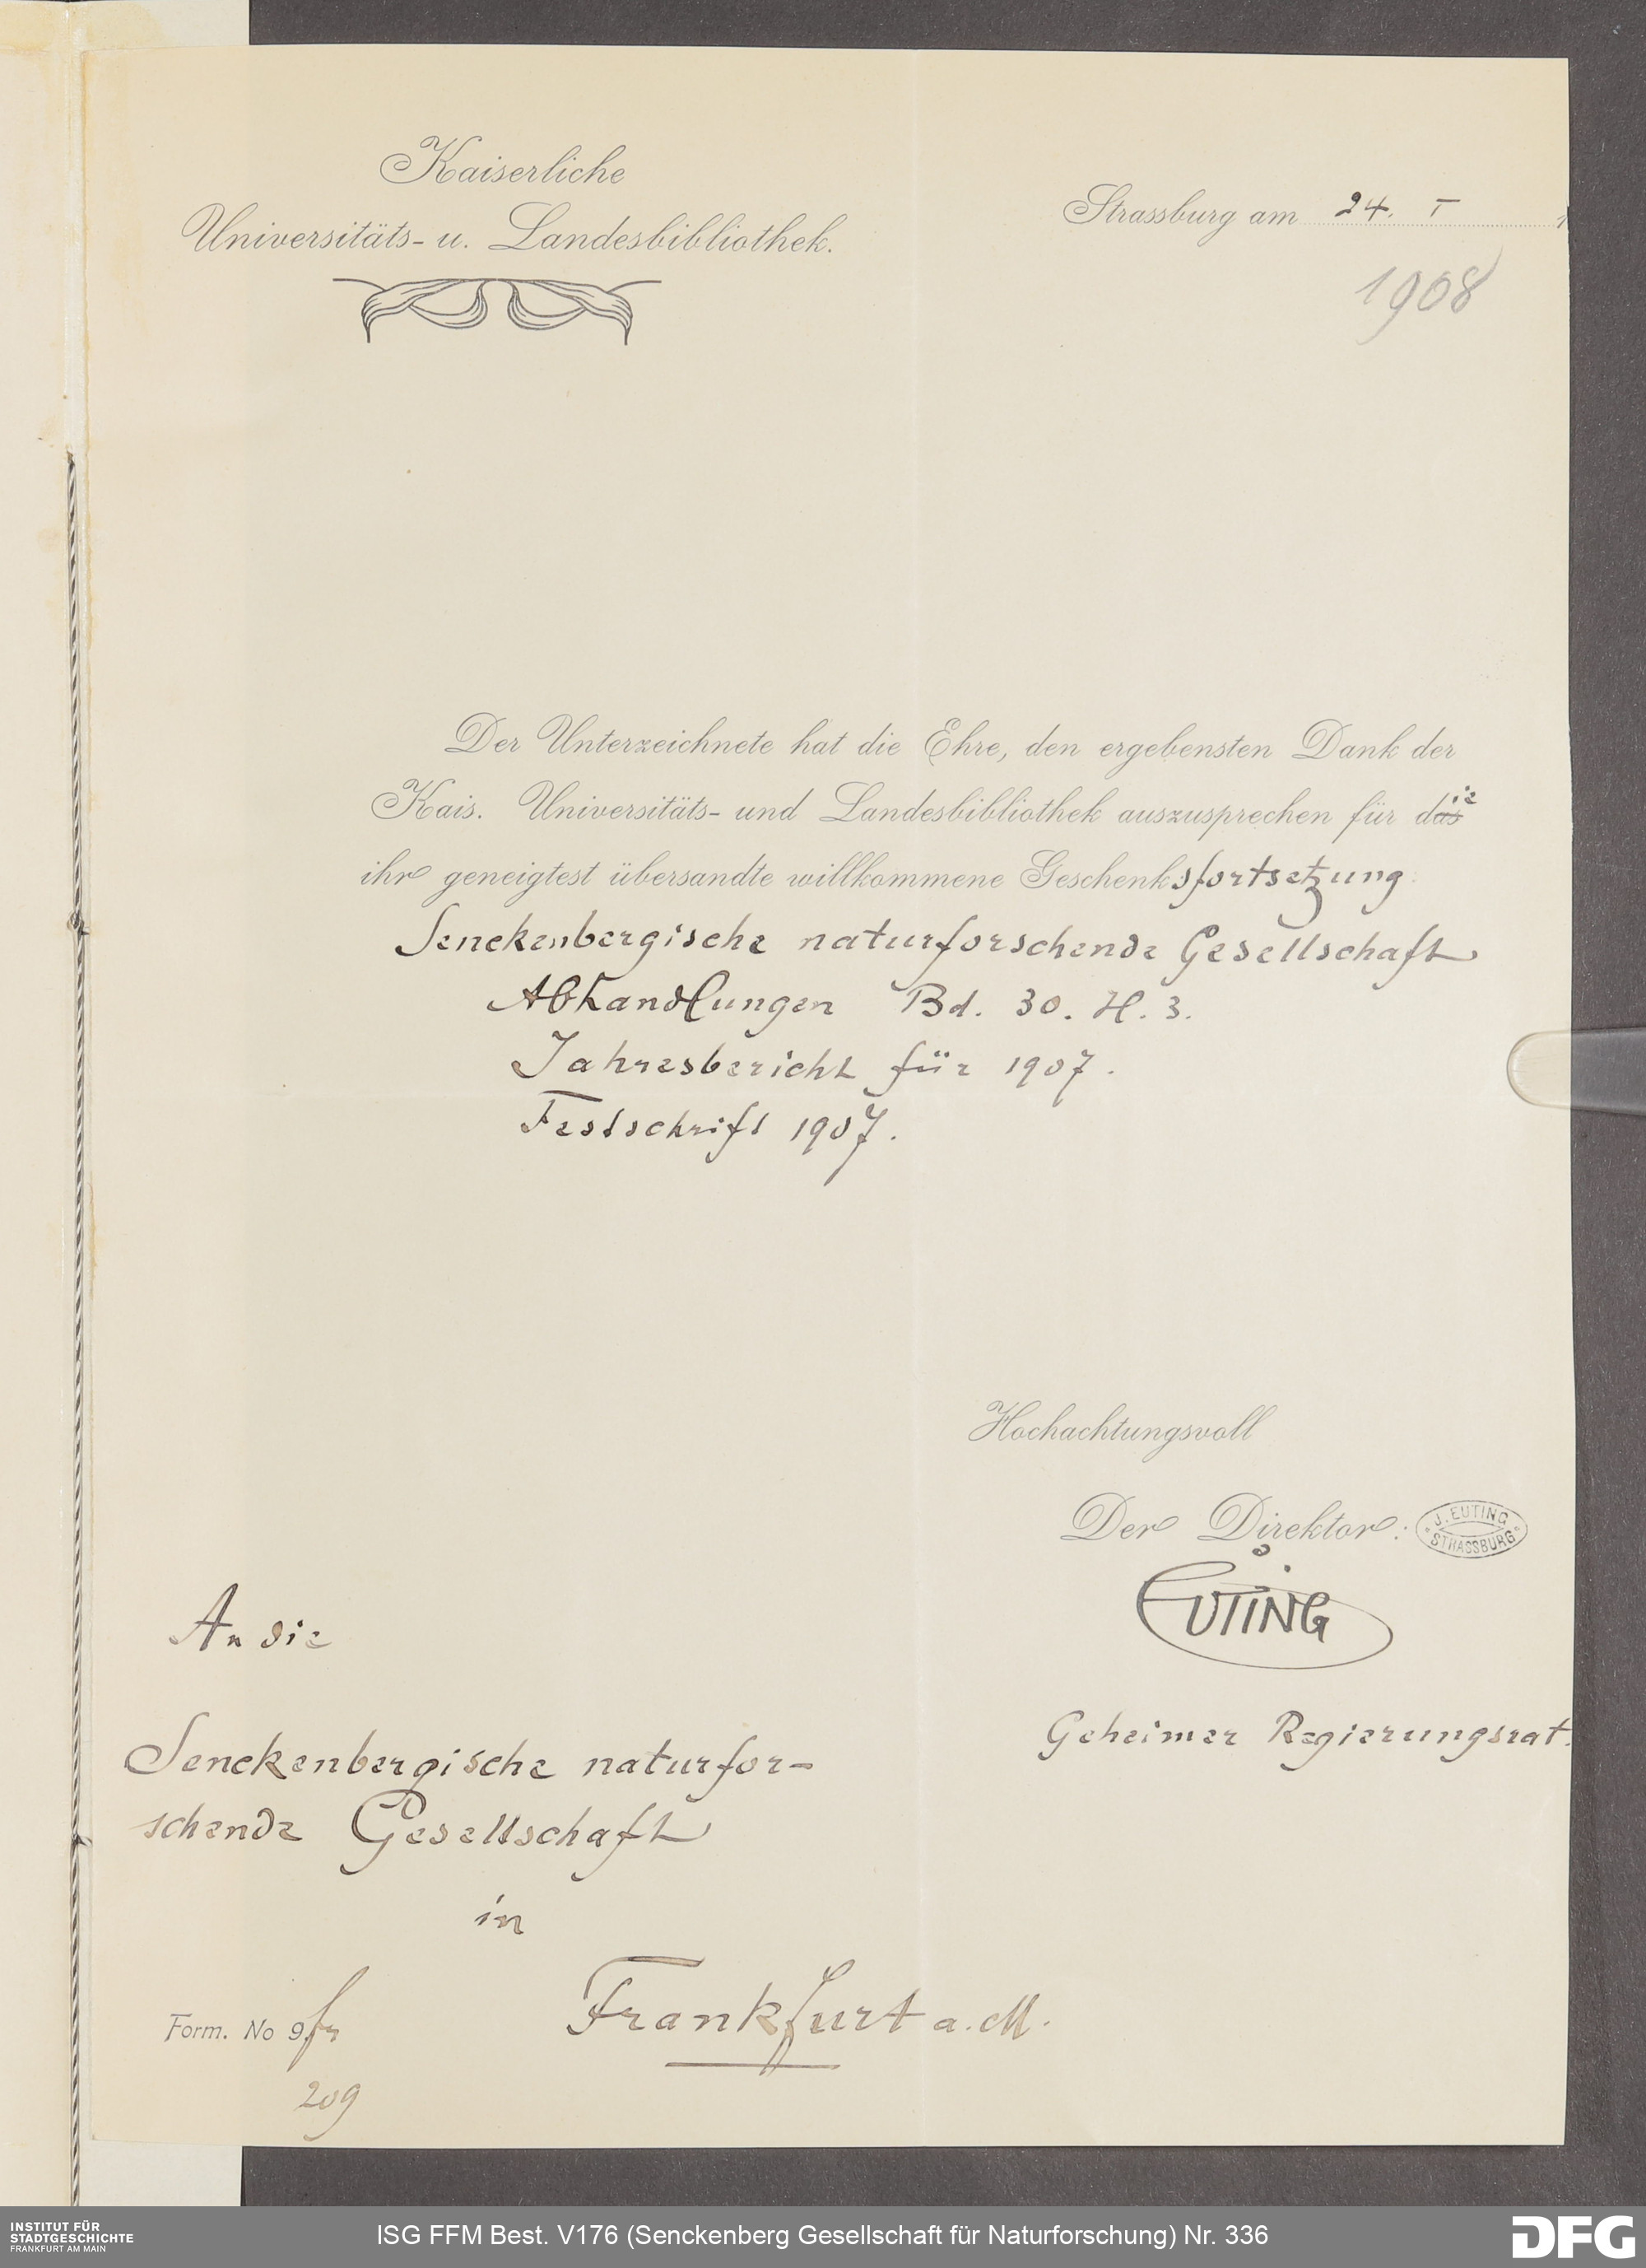 Kaiserliche
Universitäts- u. Landesbibliothek.
Strassburg am 24. I 1
1908
Der Unterzeichnete hat die Ehre, den ergebensten Dank der
Kais. Universitäts- und Landesbibliothek auszusprechen für die
ihr geneigtest übersandte willkommene Geschenksfortsetzung
Senckenbergische naturforschende Gesellschaft
Abhandlungen Bd. 30. H. 3.
Jahresbericht für 1907.
Festschrift 1907.
Hochachtungsvoll
Der Direktor:
J. EUTING
STRASSBURG
EUTING
Geheimer Regierungsrat.
An die
Senckenbergische naturfor-
schende Gesellschaft
in
Frankfurt a. M.
Form. No 9.
209
INSTITUT FÜR
STADTGESCHICHTE
FRANKFURT AM MAIN
ISG FFM Best. V176 (Senckenberg Gesellschaft für Naturforschung) Nr. 336
DFG